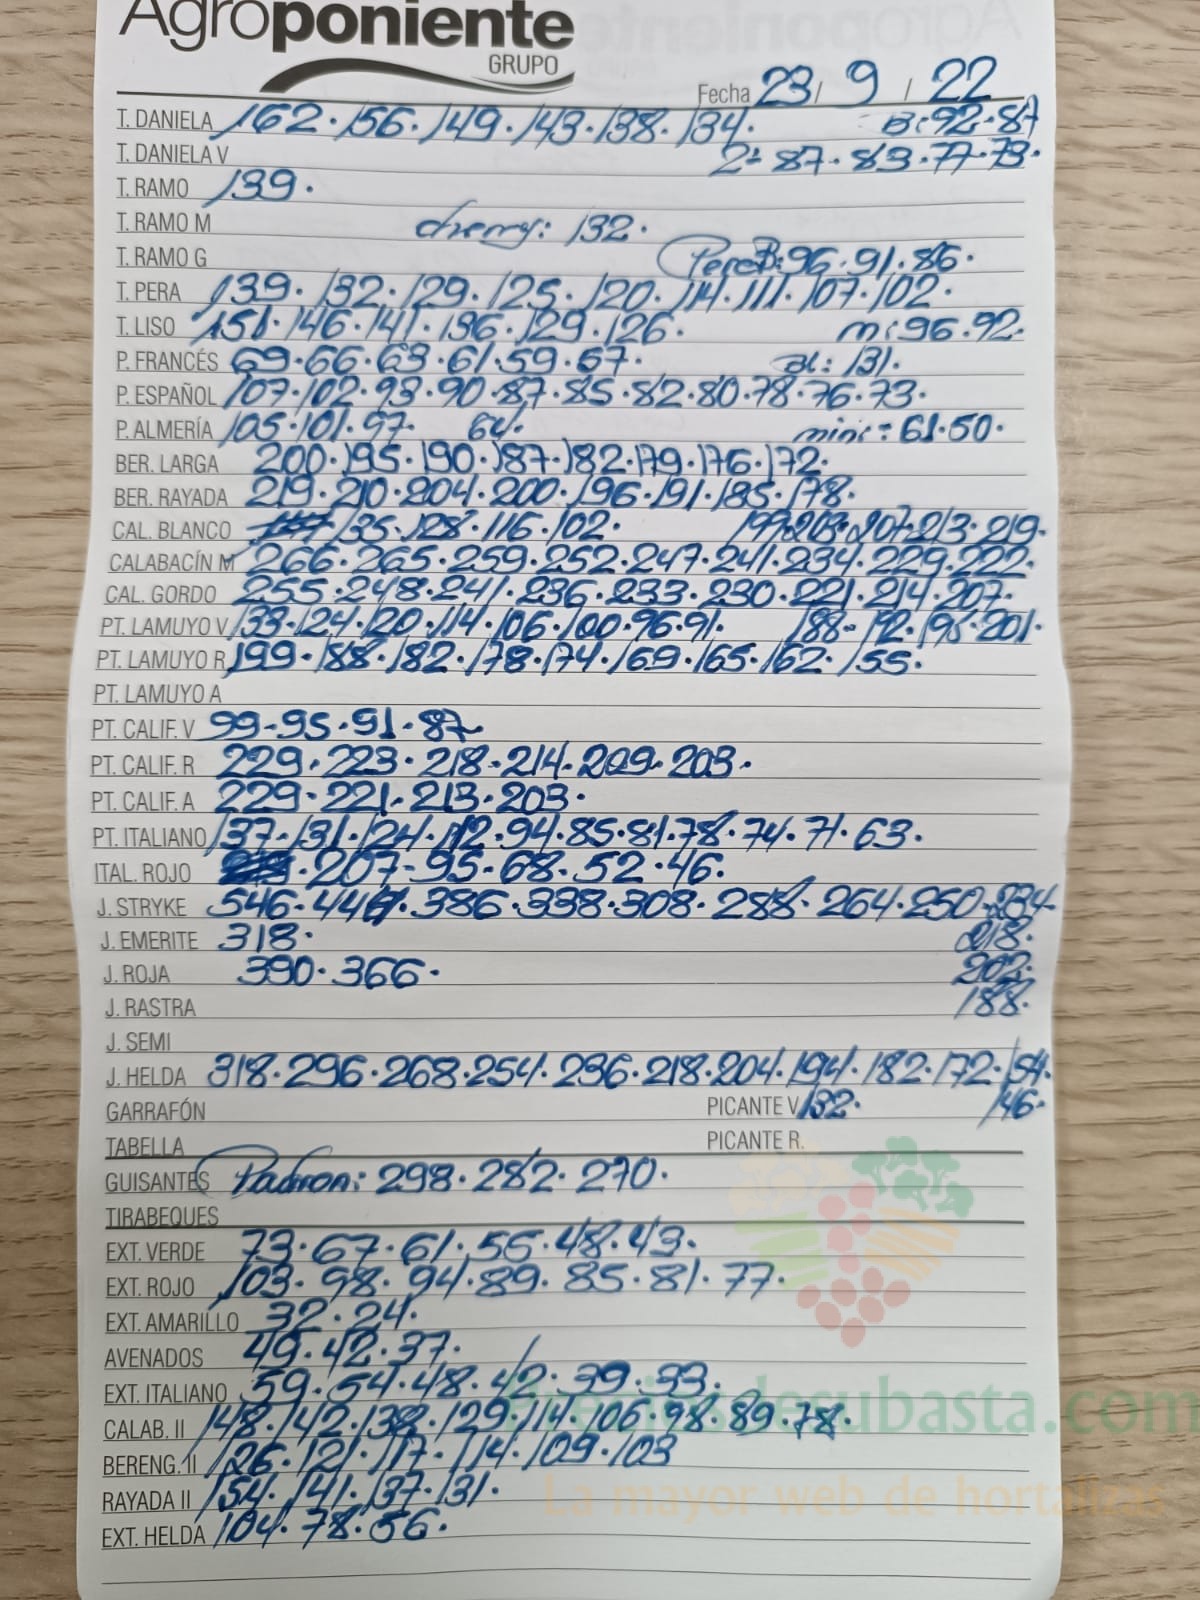 Agroponiente
GRUPO
Fecha 23/ 9 / 22
T. DANIELA 162. 156. 149. 143. 138. 134. B: 92. 87
T. DANIELA V 2ª 87. 83. 77. 73.
T. RAMO 139.
T. RAMO M cherry: 132.
T. RAMO G Pera B: 96. 91. 86.
T. PERA 139. 132. 129. 125. 120. 114. 111. 107. 102.
T. LISO 151. 146. 141. 136. 129. 126. m: 96. 92.
P. FRANCÉS 69. 66. 63. 61. 59. 57. al: 131.
P. ESPAÑOL 107. 102. 93. 90. 87. 85. 82. 80. 78. 76. 73.
P. ALMERÍA 105. 101. 97. 64. mini: 61. 50.
BER. LARGA 200. 195. 190. 187. 182. 179. 176. 172.
BER. RAYADA 219. 210. 204. 200. 196. 191. 185. 178.
CAL. BLANCO 135. 128. 116. 102. 199. 203. 207. 213. 219.
CALABACÍN M 266. 265. 259. 252. 247. 241. 234. 229. 222.
CAL. GORDO 255. 248. 241. 236. 233. 230. 221. 214. 207.
PT. LAMUYO V 133. 124. 120. 114. 106. 100. 96. 91. 188. 192. 195. 201.
PT. LAMUYO R 199. 188. 182. 178. 174. 169. 165. 162. 155.
PT. LAMUYO A
PT. CALIF. V 99. 95. 91. 87.
PT. CALIF. R 229. 223. 218. 214. 209. 203.
PT. CALIF. A 229. 221. 213. 203.
PT. ITALIANO 137. 131. 124. 112. 94. 85. 81. 78. 74. 71. 63.
ITAL. ROJO 207. 95. 68. 52. 46.
J. STRYKE 546. 386. 338. 308. 288. 264. 250. 234
J. EMERITE 318. 218.
J. ROJA 390. 366. 202.
J. RASTRA 188.
J. SEMI
J. HELDA 318. 296. 268. 254. 236. 218. 204. 194. 182. 172. 154.
GARRAFÓN PICANTE V. 132. 146.
TABELLA PICANTE R.
GUISANTES Padron: 298. 282. 270.
TIRABEQUES
EXT. VERDE 73. 67. 61. 55. 48. 43.
EXT. ROJO 103. 98. 94. 89. 85. 81. 77.
EXT. AMARILLO 32. 24.
AVENADOS 49. 42. 37.
EXT. ITALIANO 59. 54. 48. 42. 39. 33.
CALAB. II 148. 142. 138. 129. 114. 106. 98. 89. 78.
BERENG. II 126. 121. 117. 114. 109. 103
RAYADA II 154. 141. 137. 131.
EXT. HELDA 104. 78. 56.
Preciosdesubasta.com
La mayor web de hortalizas